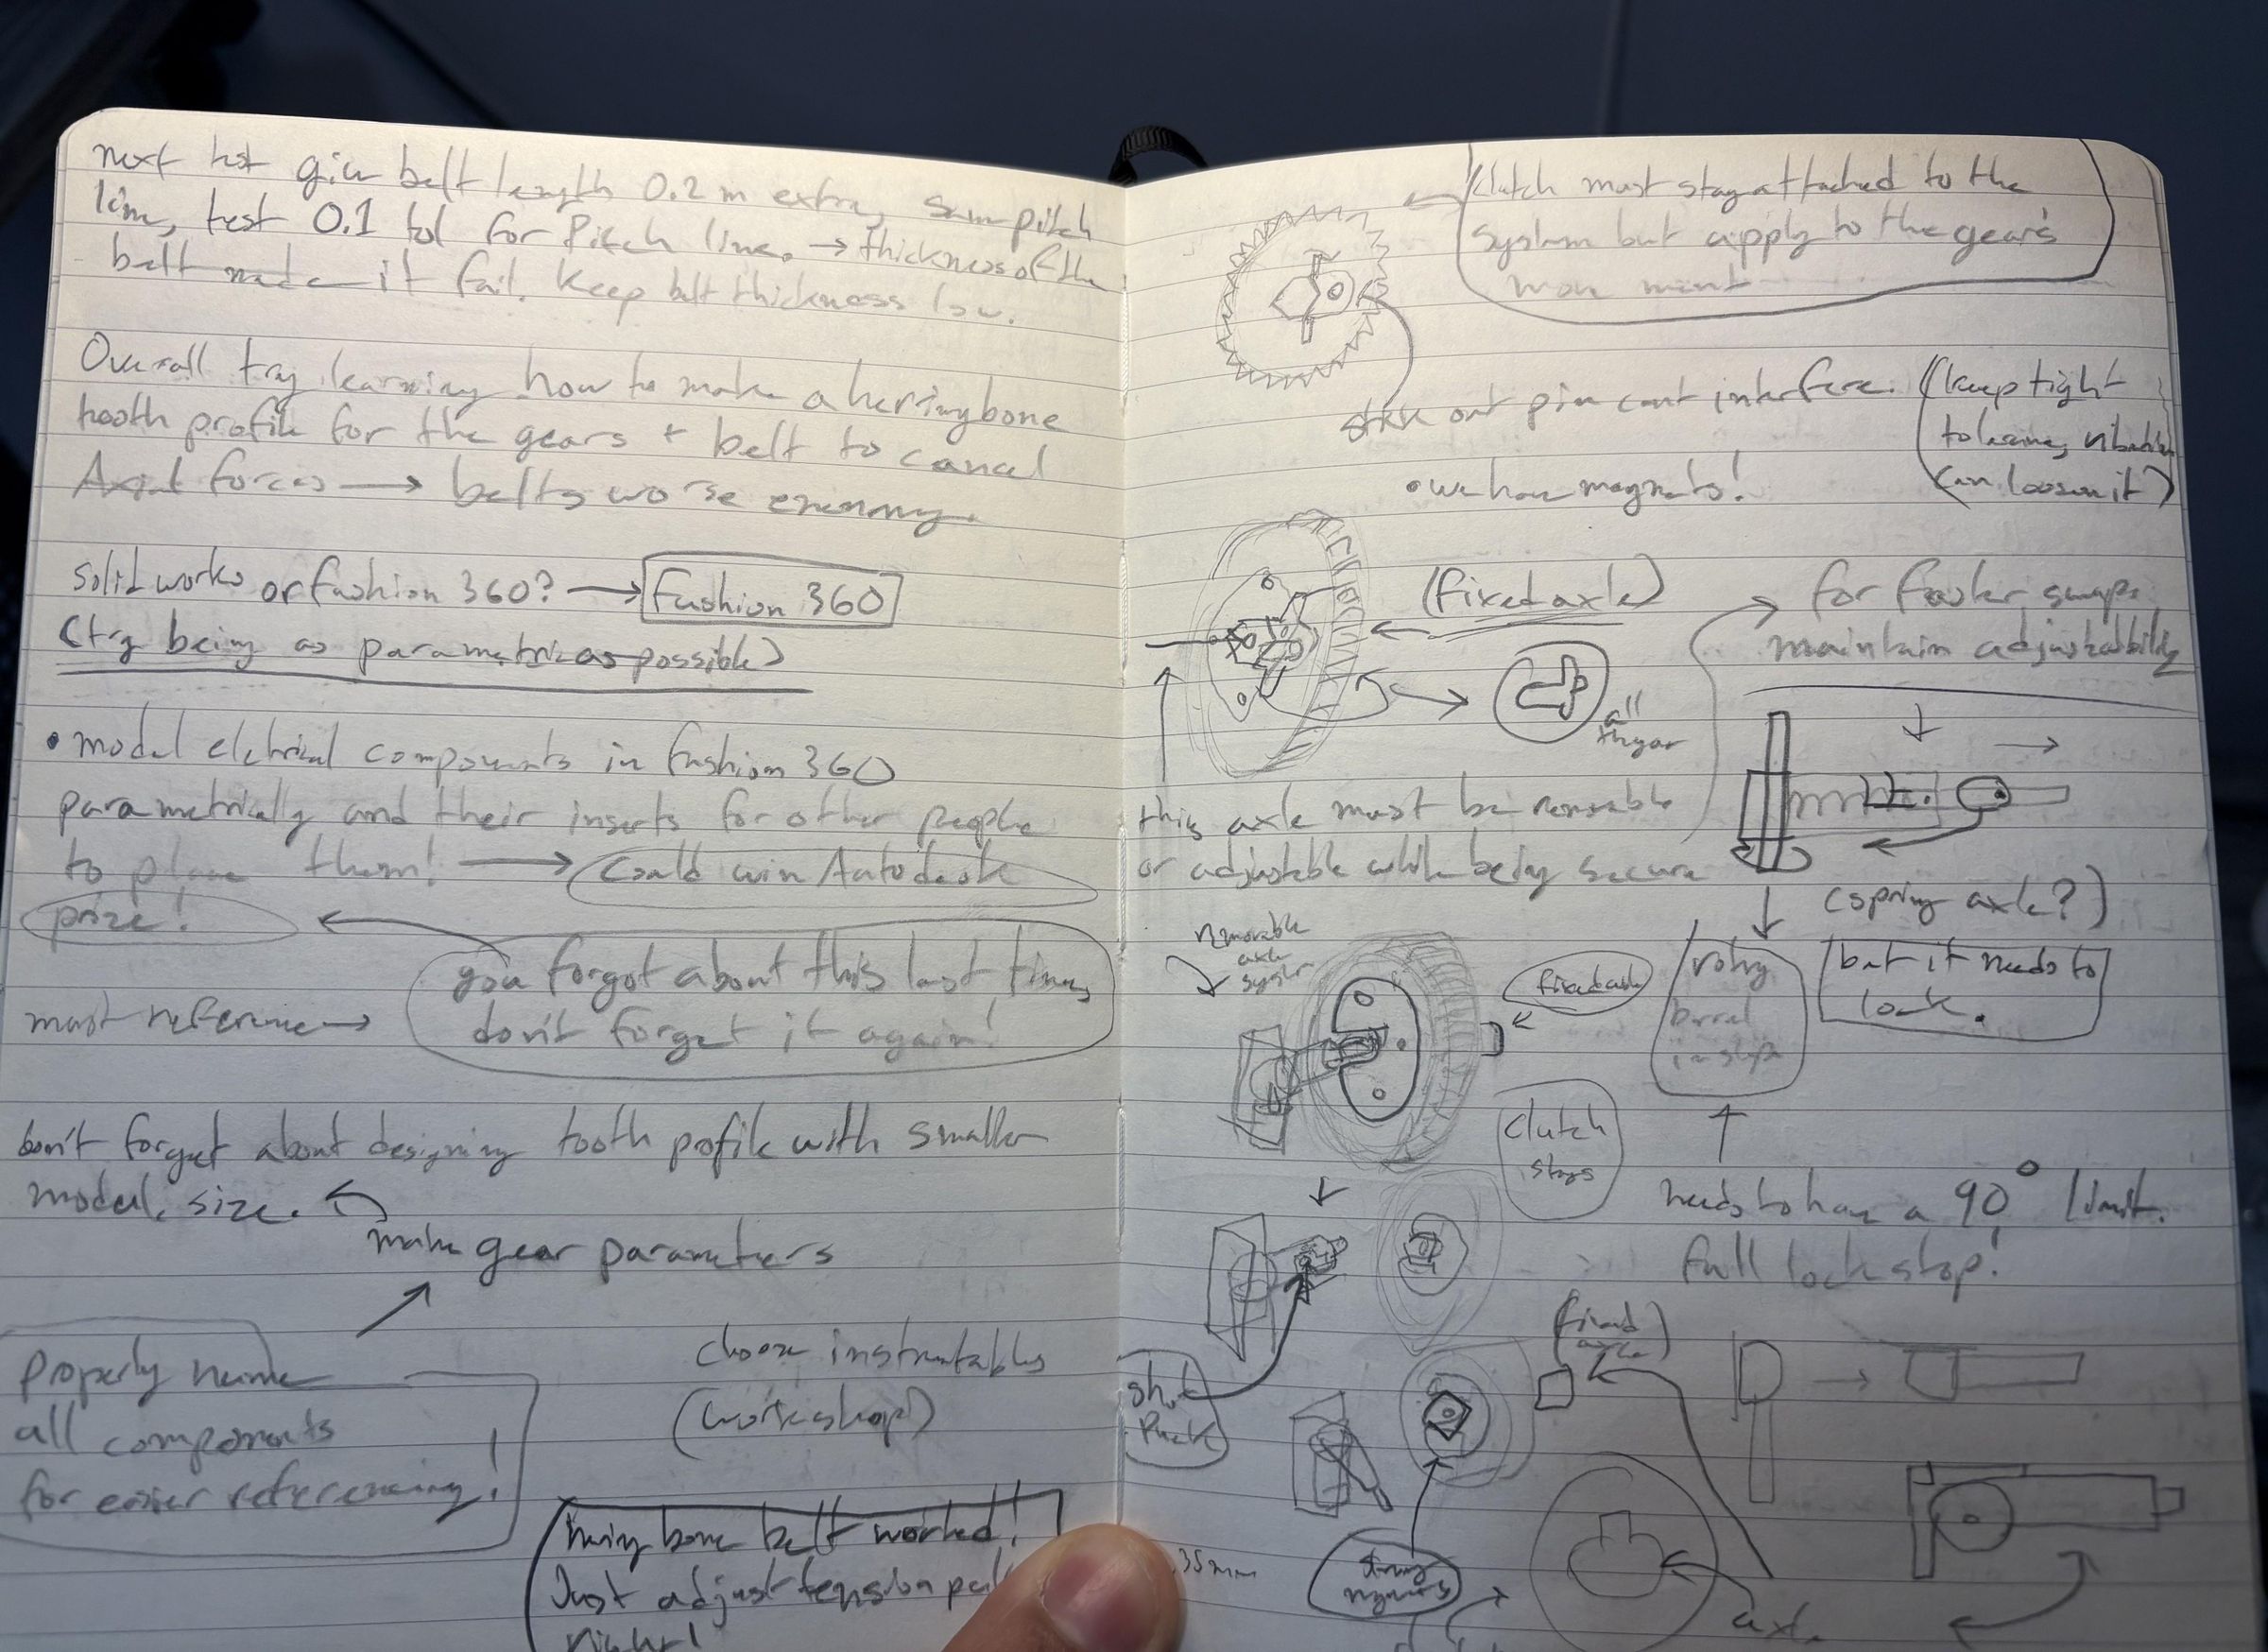 next test give belt length 0.2 m extra, same pitch
line, test 0.1 tol for Pitch line. → thickness of the
belt made it fail. Keep belt thickness low.
Overall try learning how to make a herringbone
tooth profile for the gears + belt to cancel
forces → belts worse enemy.
Solidworks or fushion 360? → Fushion 360
(try being as parametric as possible)
• model eletrical components in fushion 360
parametrically and their inserts for other people
to place them! → Could win Autodesk
prize! ←
you forgot about this last time,
must reference →
don't forget it again!
don't forget about designing tooth profile with smaller
model size. ←
make gear parameters
Properly name
all components
for easier referencing!
choose instructables
(workshop)
bone belt worked!
Just adjust tension
right!
Clutch must stay attached to the
system but apply to the gear's
stick out pin cant interfere.
(keep tight
can loosen it)
• we have magnets!
(fixed axle)
for faster swaps
maintain adjustability
this axle must be
or adjustable while being secure
(spring axle?)
removable
axle
fixed axle
but it needs to
lock.
Clutch
stays
needs to have a 90° limit.
full lock stop!
(fixed
axle)
35mm
axle